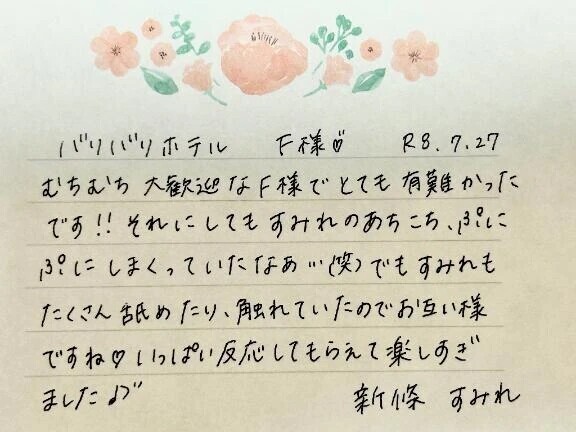 バリバリホテル F様♡ R8.7.27
むちむち大歓迎なF様でとても有難かった
です!!それにしてもすみれのあちこち、ぷに
ぷにしまくっていたなあ…(笑)でもすみれも
たくさん舐めたり、触れていたのでお互い様
ですね♡いっぱい反応してもらえて楽しすぎ
ました♪
新條 すみれ